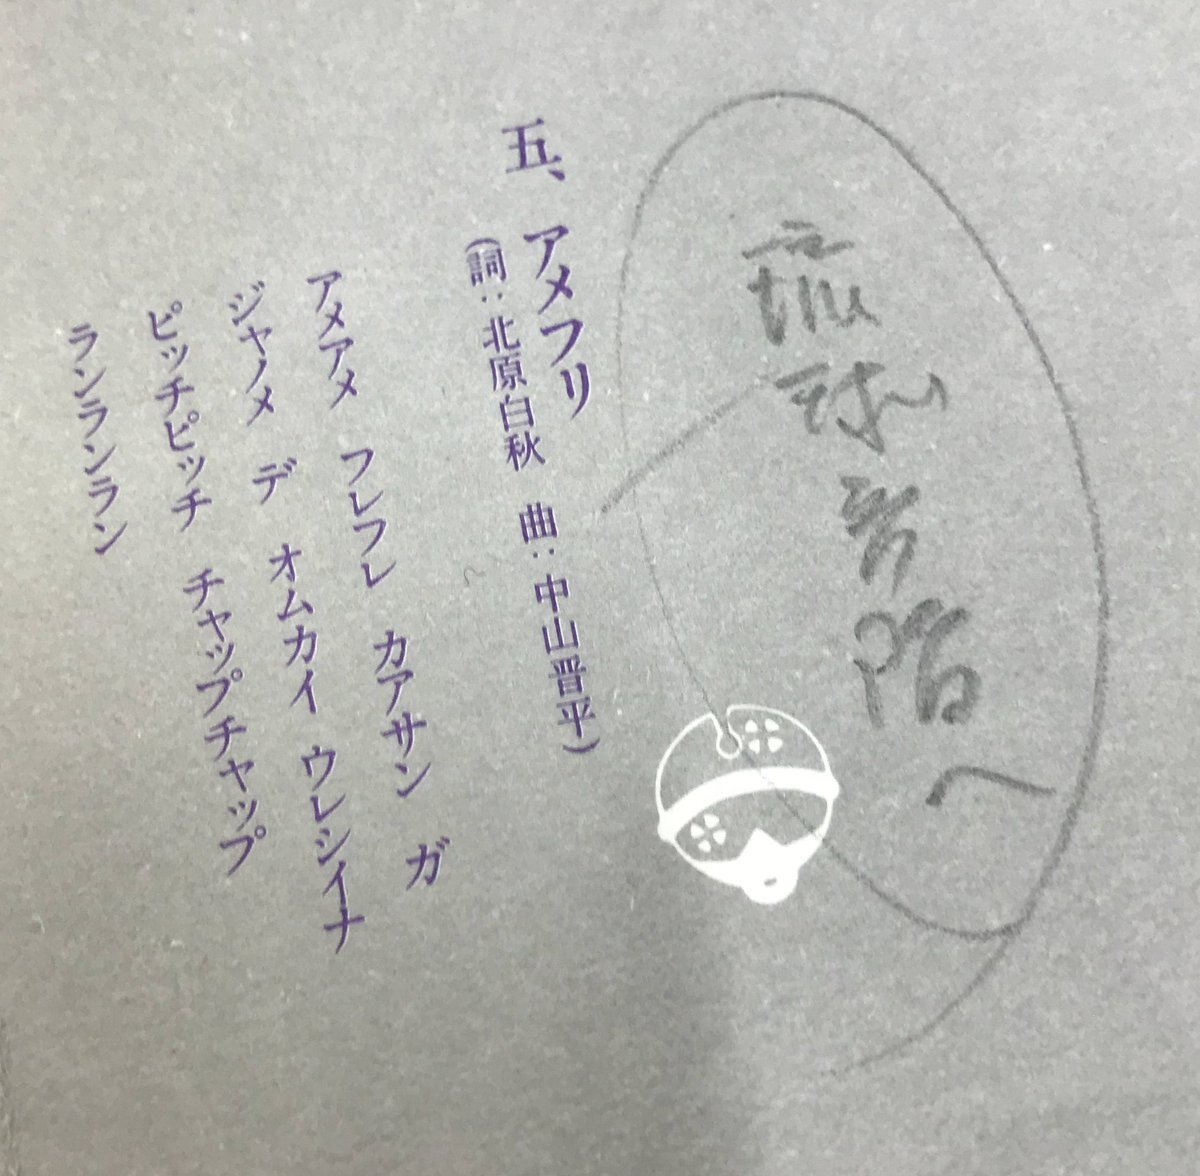 琉球音階へ
五、アメフリ
(詞:北原白秋 曲:中山晋平)
アメアメ フレフレ カアサン ガ
ジャノメ デ オムカイ ウレシイナ
ピッチピッチ チャップチャップ
ランランラン